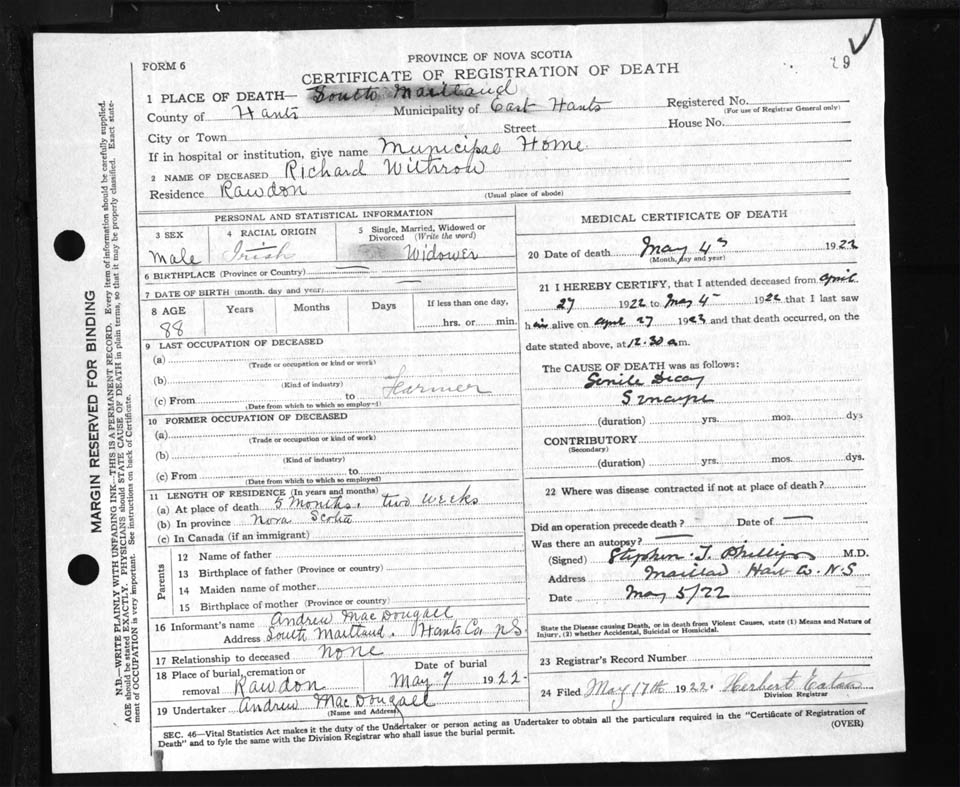 FORM 6
PROVINCE OF NOVA SCOTIA
19
CERTIFICATE OF REGISTRATION OF DEATH
1 PLACE OF DEATH— South Maitland
County of Hants Municipality of East Hants Registered No.
(For use of Registrar General only)
City or Town Street House No.
If in hospital or institution, give name Municipal Home
2 NAME OF DECEASED Richard Withrow
Residence Rawdon (Usual place of abode)
PERSONAL AND STATISTICAL INFORMATION
3 SEX 4 RACIAL ORIGIN 5 Single, Married, Widowed or Divorced (Write the word)
Male Irish Widower
6 BIRTHPLACE (Province or Country) —
7 DATE OF BIRTH (month, day and year) —
8 AGE Years Months Days If less than one day,
88 hrs. or min.
9 LAST OCCUPATION OF DECEASED
(a)
(Trade or occupation or kind of work)
(b)
(Kind of industry)
Farmer
(c) From to
(Date from which to which so employed)
10 FORMER OCCUPATION OF DECEASED
(a)
(Trade or occupation or kind of work)
(b)
(Kind of industry)
(c) From to
(Date from which to which so employed)
11 LENGTH OF RESIDENCE (In years and months)
(a) At place of death 5 Months, two weeks
(b) In province Nova Scotia
(c) In Canada (if an immigrant)
Parents
12 Name of father
13 Birthplace of father (Province or country)
14 Maiden name of mother
15 Birthplace of mother (Province or country)
16 Informant's name Andrew MacDougall
Address South Maitland, Hants Co NS
17 Relationship to deceased none
18 Place of burial, cremation or removal Rawdon Date of burial May 7 1922
19 Undertaker Andrew MacDougall
(Name and Address)
MEDICAL CERTIFICATE OF DEATH
20 Date of death May 4 1922
(Month, day and year)
21 I HEREBY CERTIFY, that I attended deceased from April
27 1922 to May 4 1922 that I last saw
him alive on April 27 1923 and that death occurred, on the
date stated above, at 12.30 a.m.
The CAUSE OF DEATH was as follows:
Senile Decay
(duration) yrs. mos. dys
CONTRIBUTORY
(Secondary)
(duration) yrs. mos. dys.
22 Where was disease contracted if not at place of death?
Did an operation precede death? — Date of —
Was there an autopsy? —
(Signed) Stephen T. Phillips M.D.
Address Maitland Hants Co. N.S
Date May 5/22
State the Disease causing Death, or in death from Violent Causes, state (1) Means and Nature of
Injury, (2) whether Accidental, Suicidal or Homicidal.
23 Registrar's Record Number
24 Filed May 17th 1922. Herbert Eaton
Division Registrar
SEC. 46—Vital Statistics Act makes it the duty of the Undertaker or person acting as Undertaker to obtain all the particulars required in the "Certificate of Registration of
Death" and to fyle the same with the Division Registrar who shall issue the burial permit.
(OVER)
MARGIN RESERVED FOR BINDING
N.D.—WRITE PLAINLY WITH UNFADING INK—THIS IS A PERMANENT RECORD. Every item of information should be carefully supplied.
AGE should be stated EXACTLY. PHYSICIANS should STATE CAUSE OF DEATH in plain terms, so that it may be properly classified. Exact statement of OCCUPATION is very important. See instructions on back of Certificate.